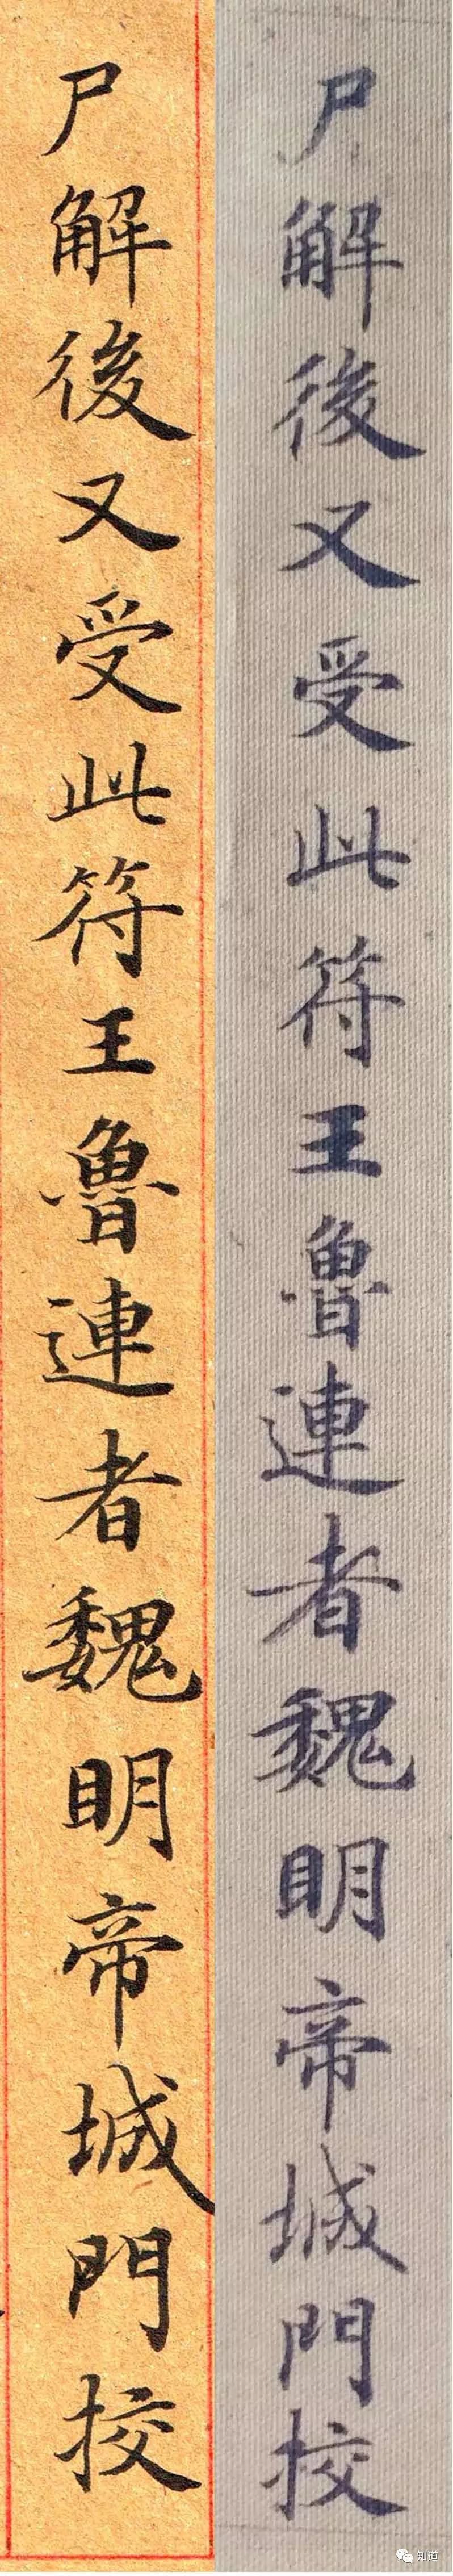 尸解後又受此符王魯連者魏明帝城門挍
尸解後又受此符王魯連者魏明帝城門挍
知道